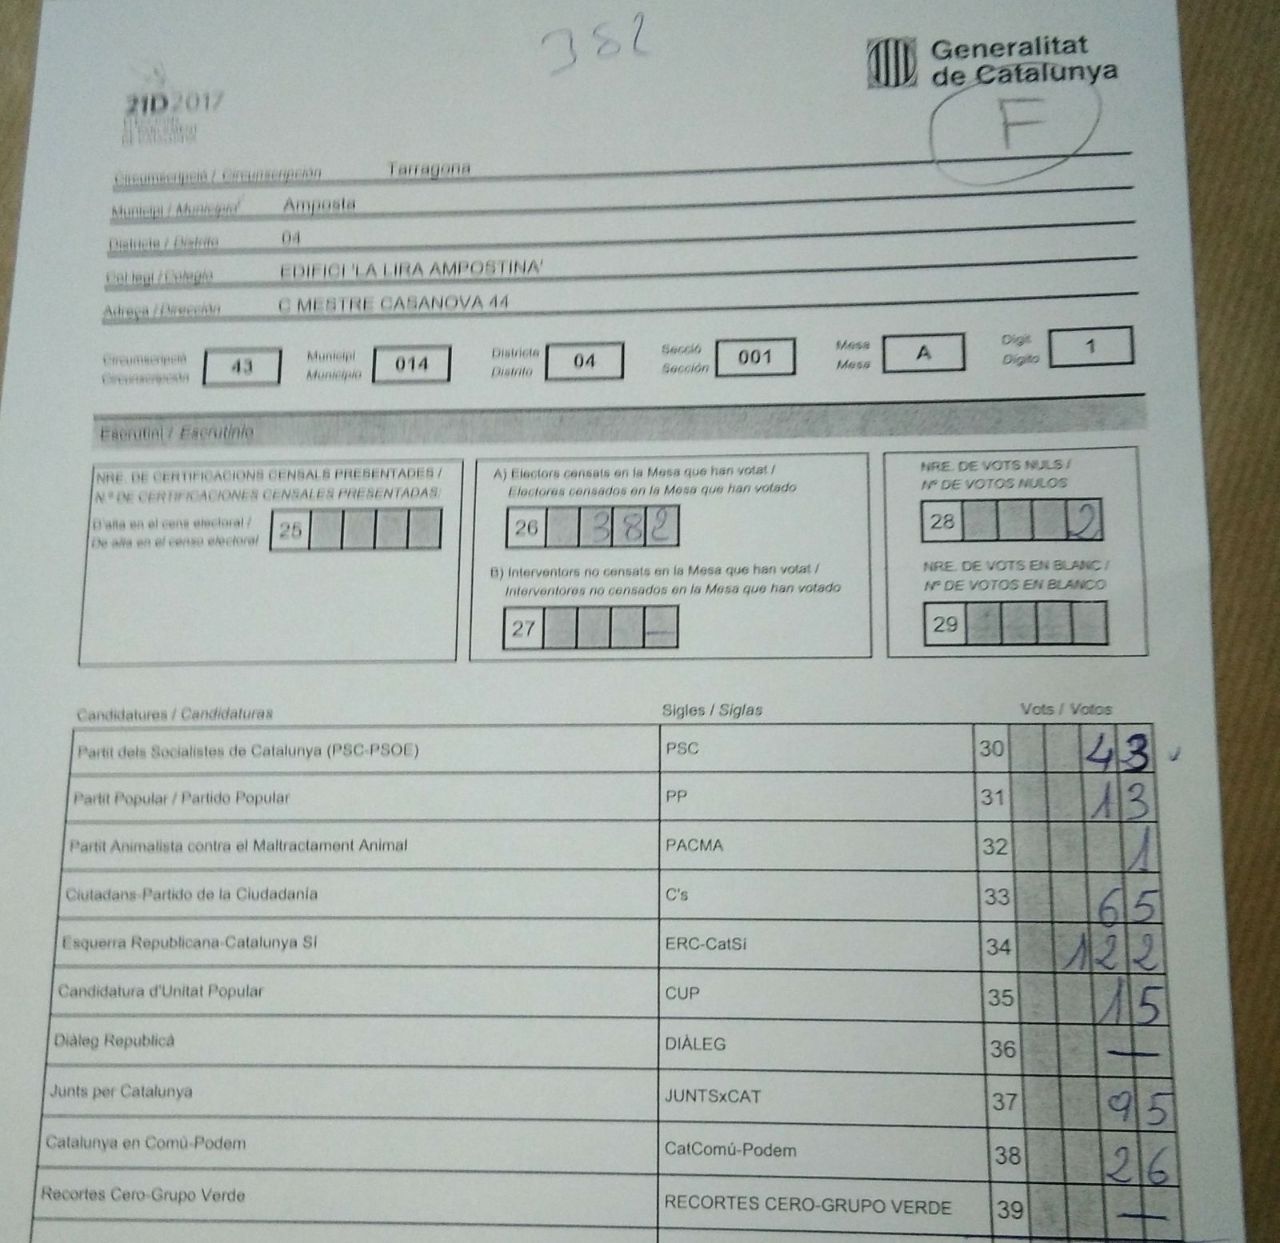 382
Generalitat
de Catalunya
F
21D2017
Circumscripció / Circunscripción Tarragona
Municipi / Municipio Amposta
Districte / Distrito 04
Col·legi / Colegio EDIFICI 'LA LIRA AMPOSTINA'
Adreça / Dirección C MESTRE CASANOVA 44
Circumscripció
Circunscripción 43
Municipi
Municipio 014
Districte
Distrito 04
Secció
Sección 001
Mesa
Mesa A
Dígit
Dígito 1
Escrutini / Escrutinio
NRE. DE CERTIFICACIONS CENSALS PRESENTADES /
N.º DE CERTIFICACIONES CENSALES PRESENTADAS:
D'alta en el cens electoral /
De alta en el censo electoral 25
A) Electors censats en la Mesa que han votat /
Electores censados en la Mesa que han votado
26 382
B) Interventors no censats en la Mesa que han votat /
Interventores no censados en la Mesa que han votado
27 —
NRE. DE VOTS NULS /
Nº DE VOTOS NULOS
28 2
NRE. DE VOTS EN BLANC /
Nº DE VOTOS EN BLANCO
29
Candidatures / Candidaturas Sigles / Siglas Vots / Votos
Partit dels Socialistes de Catalunya (PSC-PSOE) PSC 30 43
Partit Popular / Partido Popular PP 31 13
Partit Animalista contra el Maltractament Animal PACMA 32 1
Ciutadans-Partido de la Ciudadanía C's 33 65
Esquerra Republicana-Catalunya Sí ERC-CatSí 34 122
Candidatura d'Unitat Popular CUP 35 15
Diàleg Republicà DIÀLEG 36 —
Junts per Catalunya JUNTSxCAT 37 95
Catalunya en Comú-Podem CatComú-Podem 38 26
Recortes Cero-Grupo Verde RECORTES CERO-GRUPO VERDE 39 —